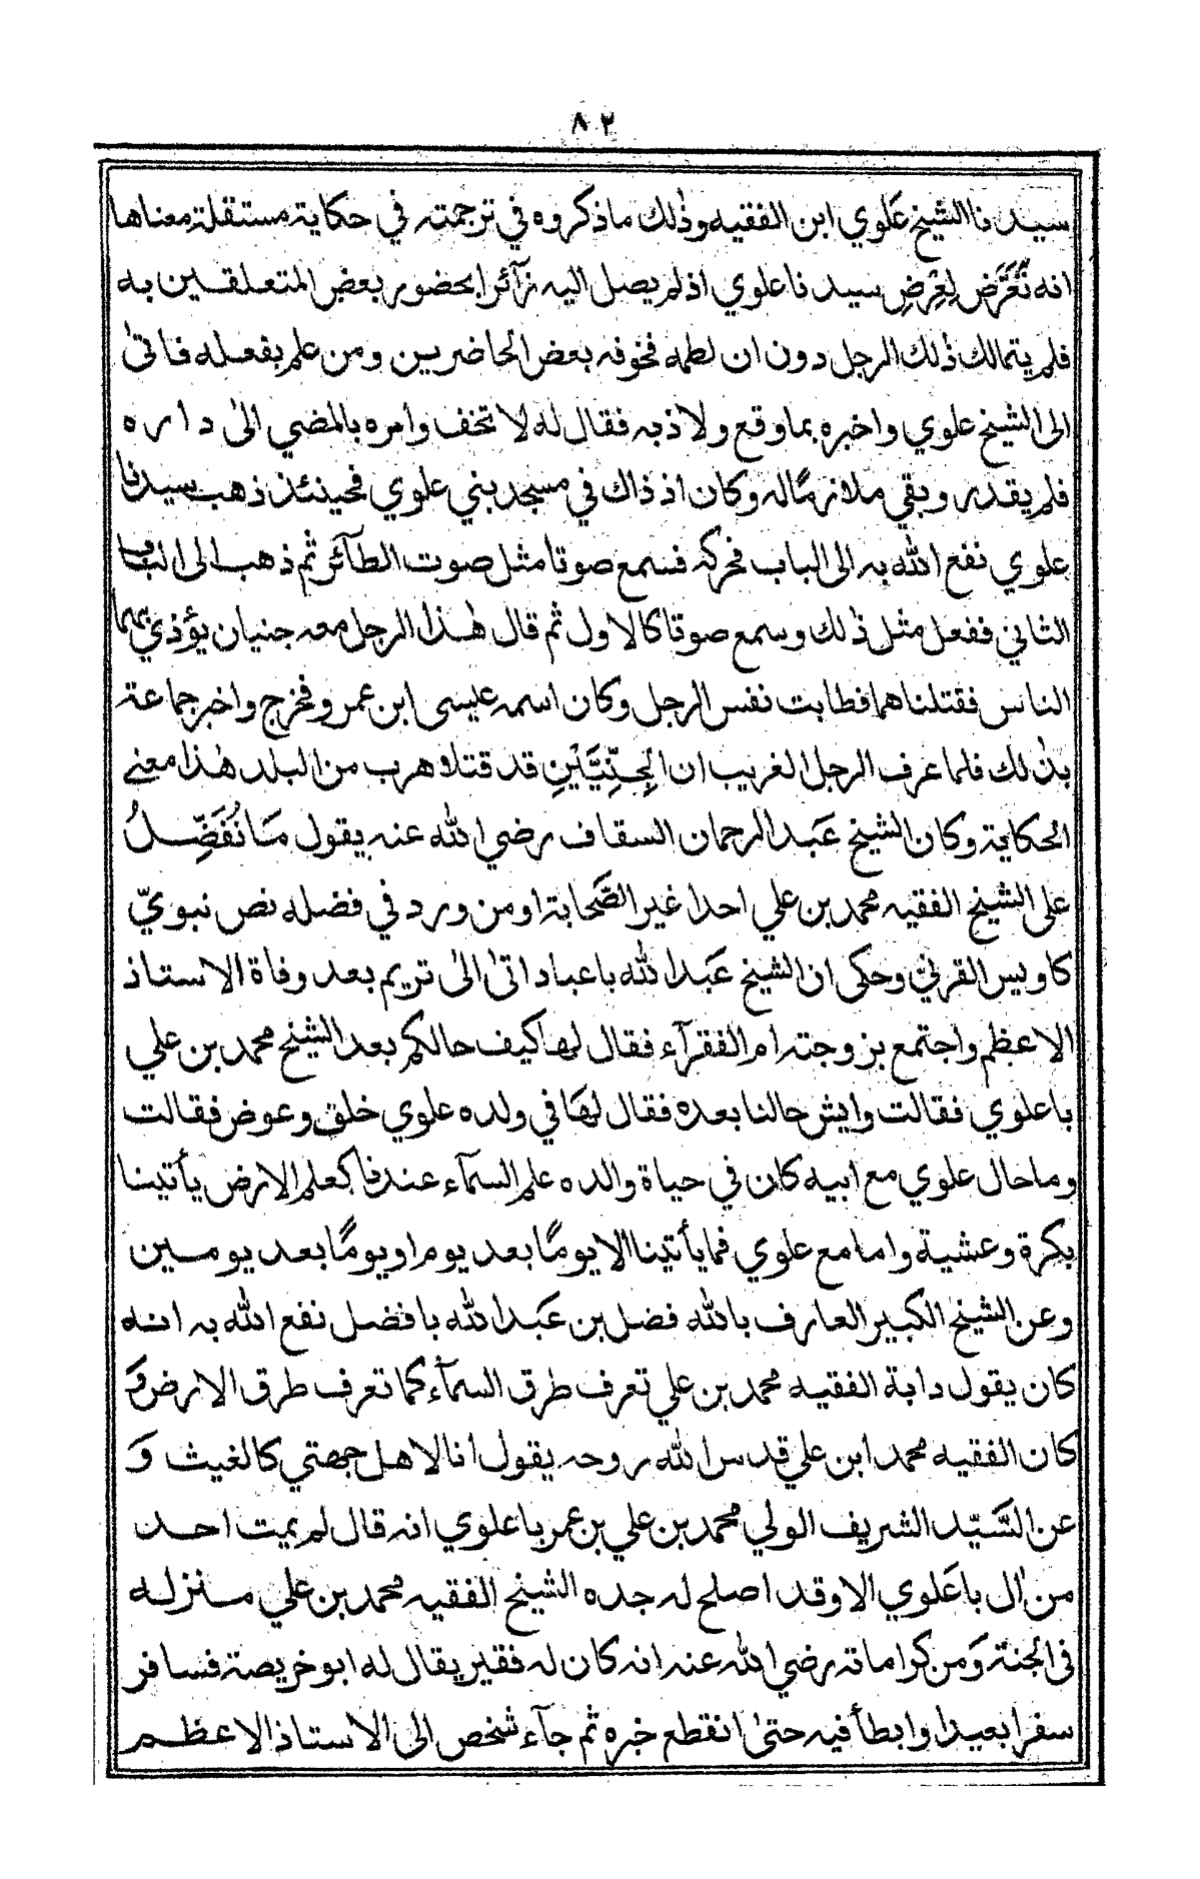 ٨٢
سيدنا الشيخ علوي ابن الفقيه وذٰلك ما ذكروه في ترجمته في حكاية مستقلة معناها
انه تَعَرَّض لِعِرضِ سيدنا علوي اذ لم يصل اليه زآئرا بحضور بعض المتعلقين به
فلم يتمالك ذٰلك الرجل دون ان لطمه فخوفه بعض الحاضرين ومن علم بفعله فاتىٰ
الى الشيخ علوي واخبره بما وقع ولاذ به فقال له لا تخف وامره بالمضي الىٰ داره
فلم يقدر وبقي ملازمًا له وكان اذ ذاك في مسجد بني علوي فحينئذ ذهب سيدنا
علوي نفع الله به الى الباب فحركه فسمع صوتا مثل صوت الطآئر ثم ذهب الى الباب
الثاني ففعل مثل ذٰلك وسمع صوتا كالاول ثم قال هٰذا الرجل معه جنيان يؤذي بهما
الناس فقتلناهما فطابت نفس الرجل وكان اسمه عيسى ابن عمر وفخرج واخبر جماعة
بذٰلك فلما عرف الرجل الغريب ان الجِنِّيَّيْنِ قد قتلا هرب من البلد هٰذا معنى
الحكاية وكان الشيخ عَبد الرحمان السقاف رضي الله عنه يقول مَا نُفَضِّلُ
على الشيخ الفقيه محمد بن علي احدا غير الصَّحابة او من ورد في فضله نص نبويّ
كاويس القرنيّ وحكى ان الشيخ عَبد الله باعباد اتىٰ الىٰ تريم بعد وفاة الاستاذ
الاعظم واجتمع بزوجته ام الفقرآء فقال لها كيف حالكم بعد الشيخ محمد بن علي
باعلوي فقالت وايش حالنا بعده فقال لها في ولده علوي خلق وعوض فقالت
وما حال علوي مع ابيه كان في حياة والده علم السمآء عندنا كعلم الارض يأتينا
بكرة وعشية واما مع علوي فما يأتينا الا يومًا بعد يوم او يومًا بعد يومين
وعن الشيخ الكبير العارف بالله فضل بن عَبد الله بافضل نفع الله به انه
كان يقول دابة الفقيه محمد بن علي تعرف طرق السمآء كما تعرف طرق الارض وَ
كان الفقيه محمد ابن علي قدس الله روحه يقول انا لاهل جهتي كالغيث وَ
عن السَّيّد الشريف الولي محمد بن علي بن عمر باعلوي انه قال لم يمت احد
من اٰل باعَلوي الا وقد اصلح له جده الشيخ الفقيه محمد بن علي منزله
في الجنة وَمن كراماته رضي الله عنه انه كان له فقير يقال له ابو خريصة فسافر
سفرا بعيدا وابطأ فيه حتىٰ انقطع خبره ثم جآء شخص الى الاستاذ الاعظم